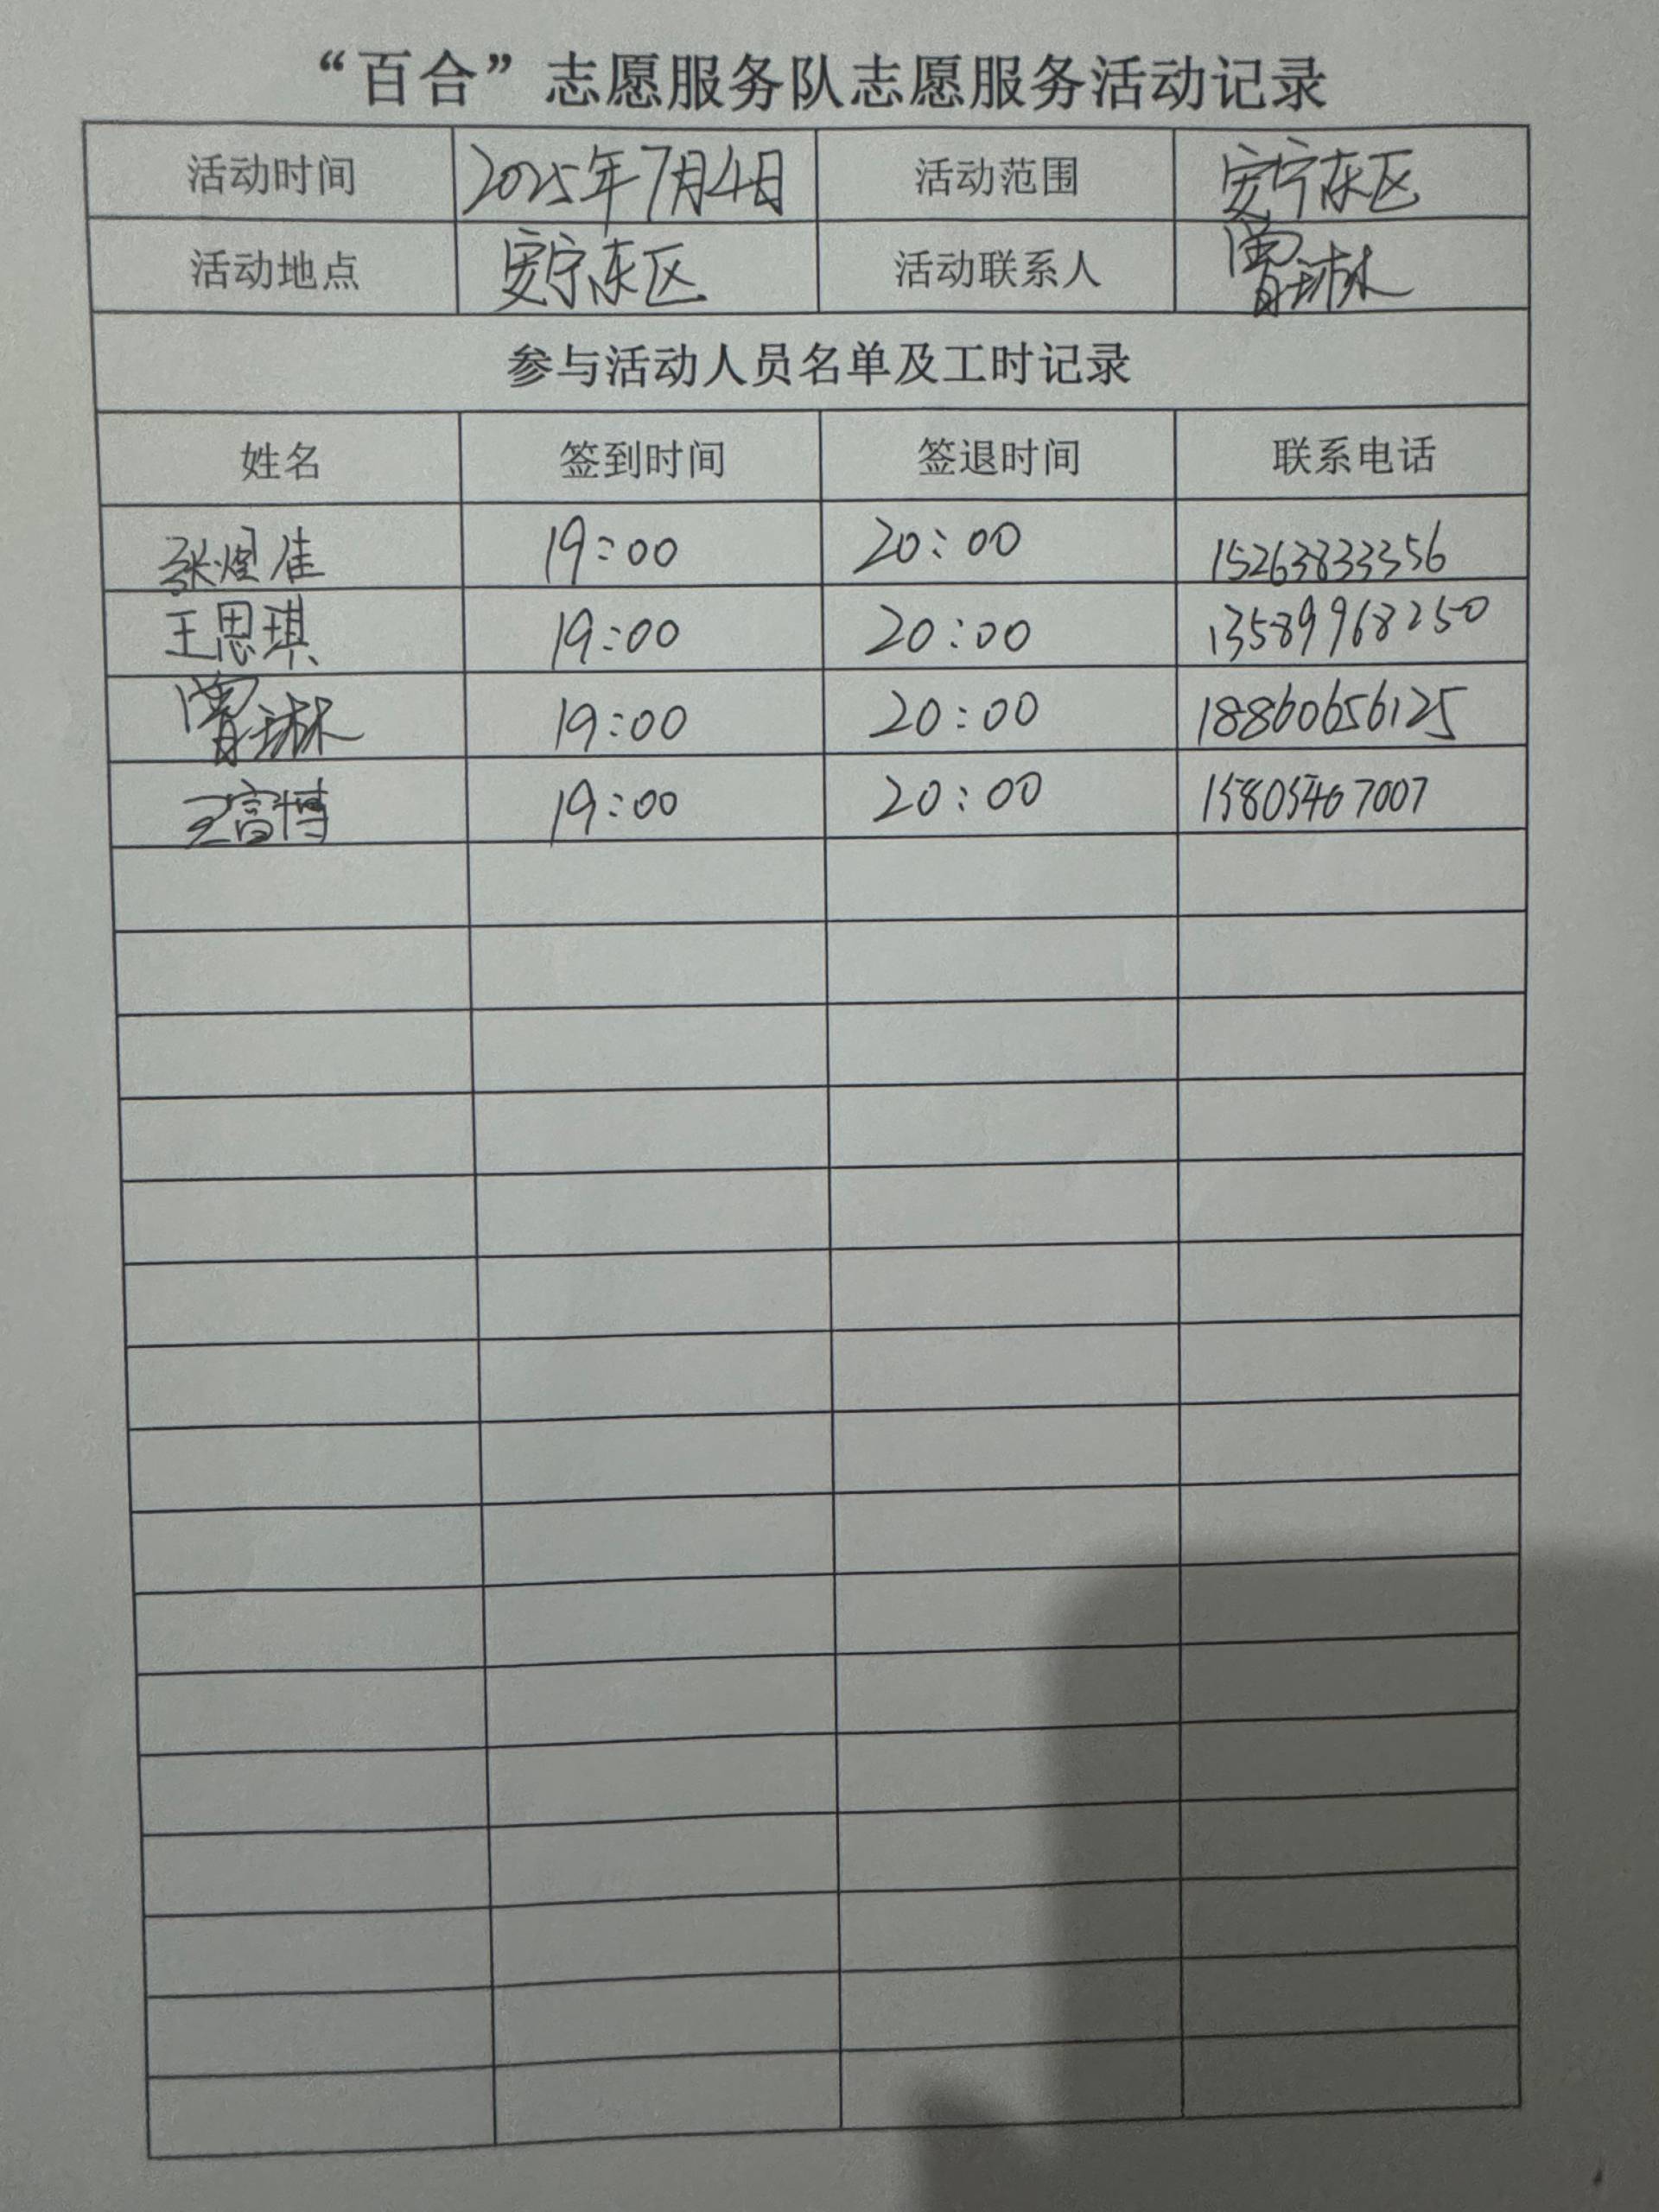 “百合”志愿服务队志愿服务活动记录
活动时间 2025年7月4日 活动范围 安宁东区
活动地点 安宁东区 活动联系人 曾琳
参与活动人员名单及工时记录
姓名 签到时间 签退时间 联系电话
张煜佳 19:00 20:00 15263833356
王思琪 19:00 20:00 13589968250
曾琳 19:00 20:00 18860656125
王富博 19:00 20:00 15805467007